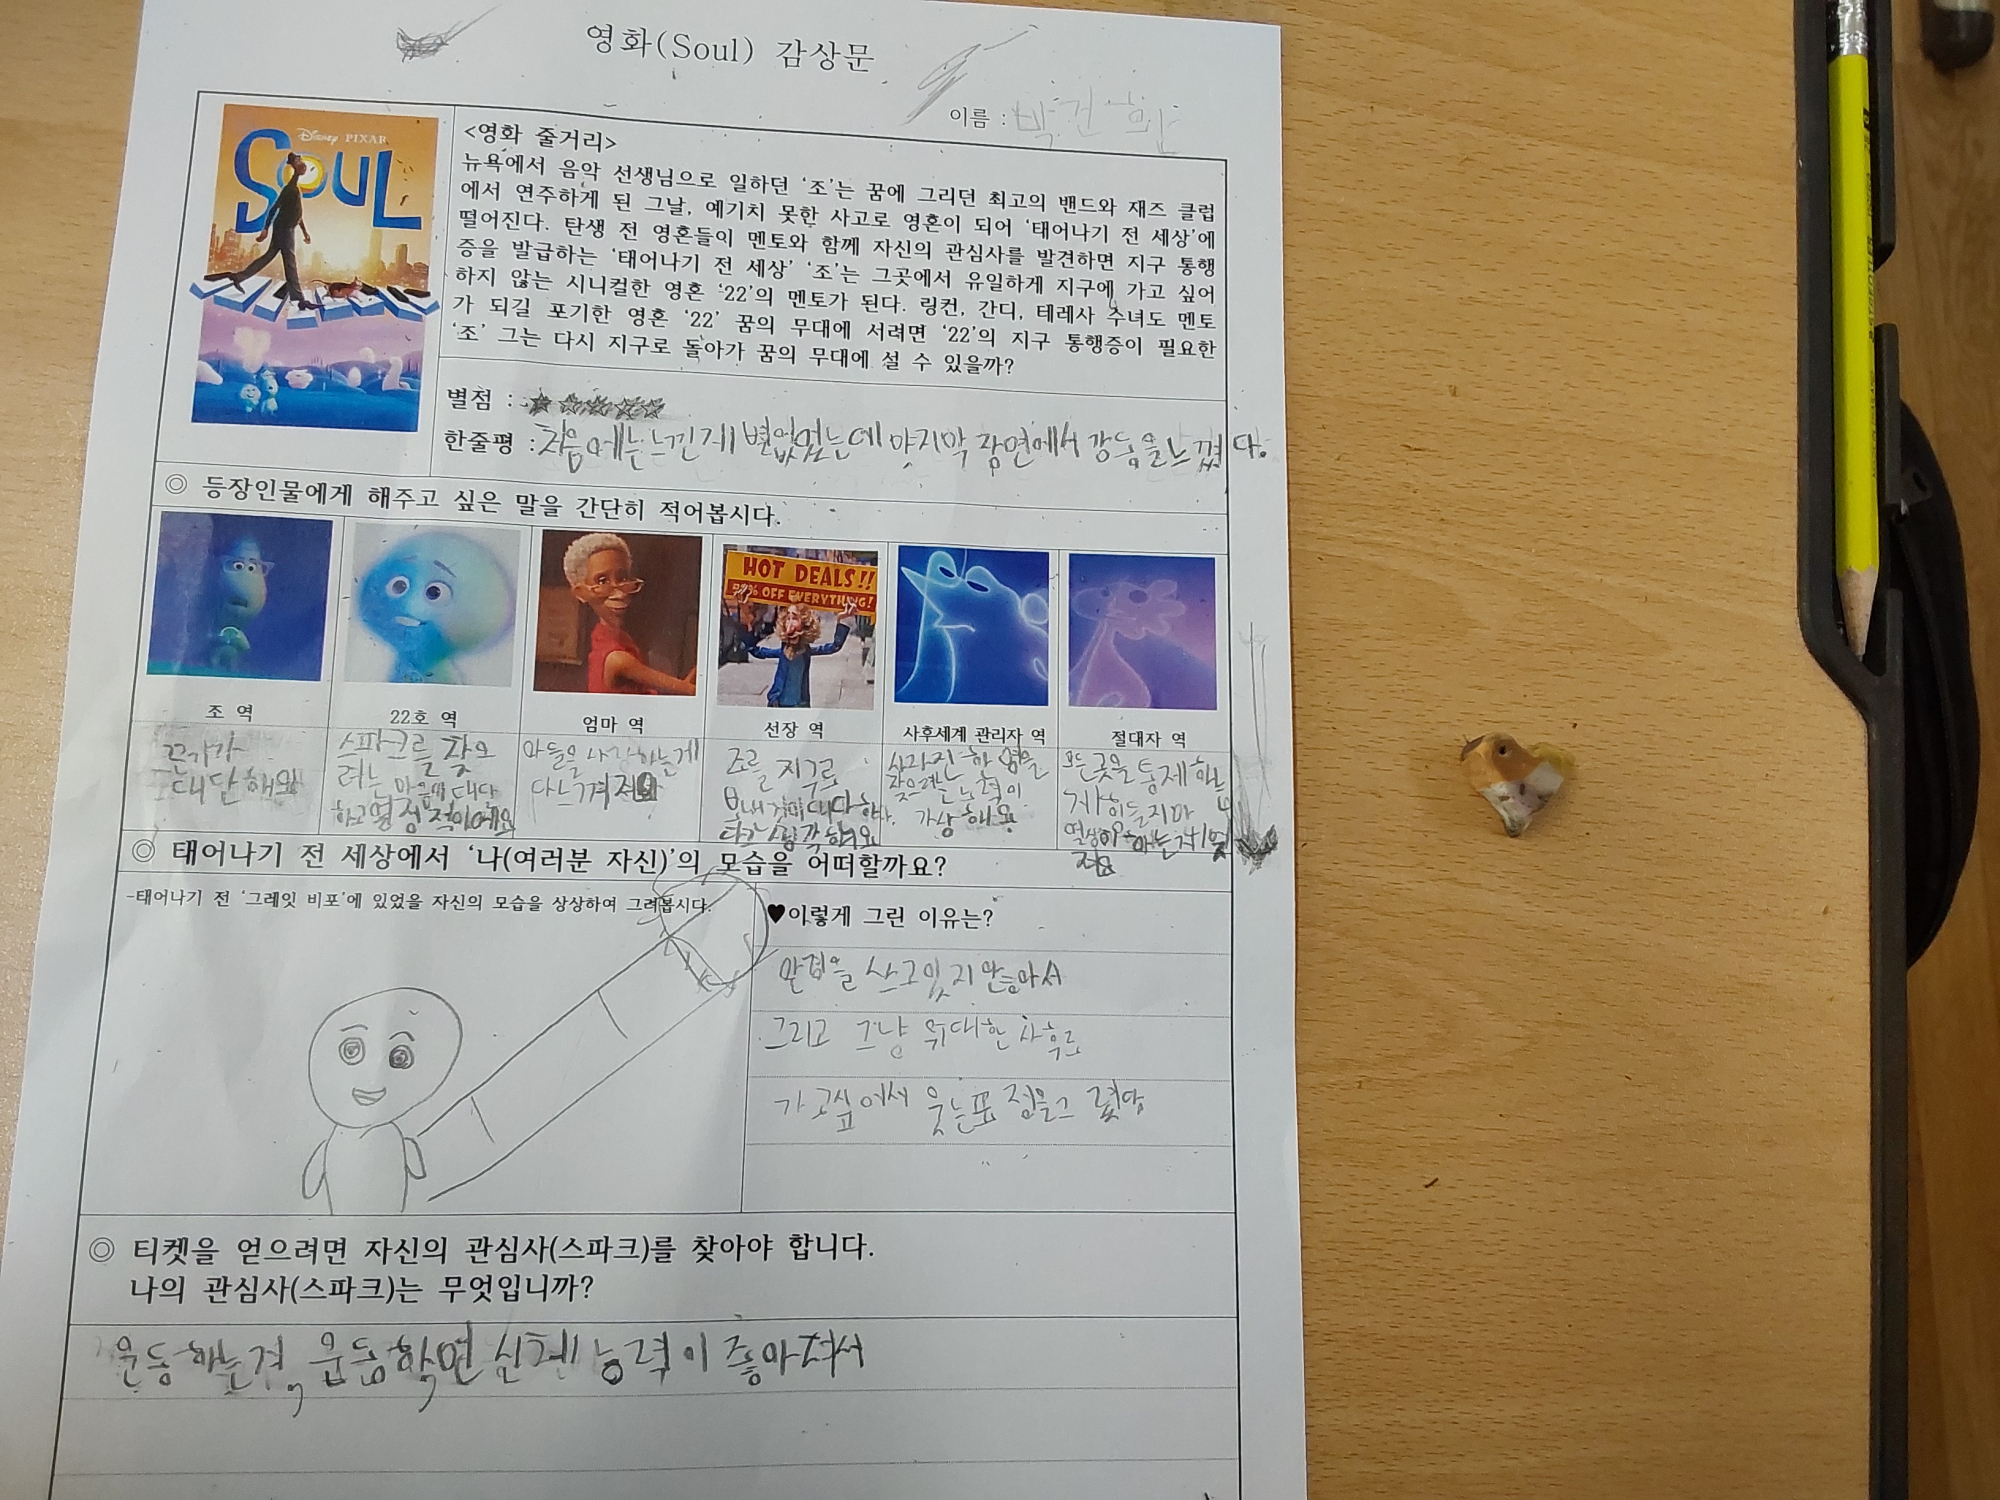 영화(Soul) 감상문
이름 : 박건
Disney PIXAR
SOUL
<영화 줄거리>
뉴욕에서 음악 선생님으로 일하던 '조'는 꿈에 그리던 최고의 밴드와 재즈 클럽
에서 연주하게 된 그날, 예기치 못한 사고로 영혼이 되어 '태어나기 전 세상'에
떨어진다. 탄생 전 영혼들이 멘토와 함께 자신의 관심사를 발견하면 지구 통행
증을 발급하는 '태어나기 전 세상' '조'는 그곳에서 유일하게 지구에 가고 싶어
하지 않는 시니컬한 영혼 '22'의 멘토가 된다. 링컨, 간디, 테레사 수녀도 멘토
가 되길 포기한 영혼 '22' 꿈의 무대에 서려면 '22'의 지구 통행증이 필요한
'조' 그는 다시 지구로 돌아가 꿈의 무대에 설 수 있을까?
별점 : ★☆☆☆☆
한줄평 : 처음에는 느낀게 별 없었는데 마지막 장면에서 감동을 느꼈다.
◎ 등장인물에게 해주고 싶은 말을 간단히 적어봅시다.
HOT DEALS!!
% OFF EVERYTHING!
조 역
22호 역
엄마 역
선장 역
사후세계 관리자 역
절대자 역
끈기가
대단해요
스파크를 찾으
려는 마음이 대단
하고 열정적이에요
아들을 사랑하는게
다 느껴져요
조를 지구로
보내 대단하
다 생각해요
사라진 한 명을
찾으려는 노력이
가상해요
모든곳을 통제하는
게 힘들지만
◎ 태어나기 전 세상에서 '나(여러분 자신)'의 모습을 어떠할까요?
-태어나기 전 '그레잇 비포'에 있었을 자신의 모습을 상상하여 그려봅시다.
♥이렇게 그린 이유는?
안경을 쓰고있지 안아서
그리고 그냥 위대한 사후로
가고싶어서 웃는표정을그렸다
◎ 티켓을 얻으려면 자신의 관심사(스파크)를 찾아야 합니다.
나의 관심사(스파크)는 무엇입니까?
운동하는것, 운동하면 신체 능력이 좋아져서